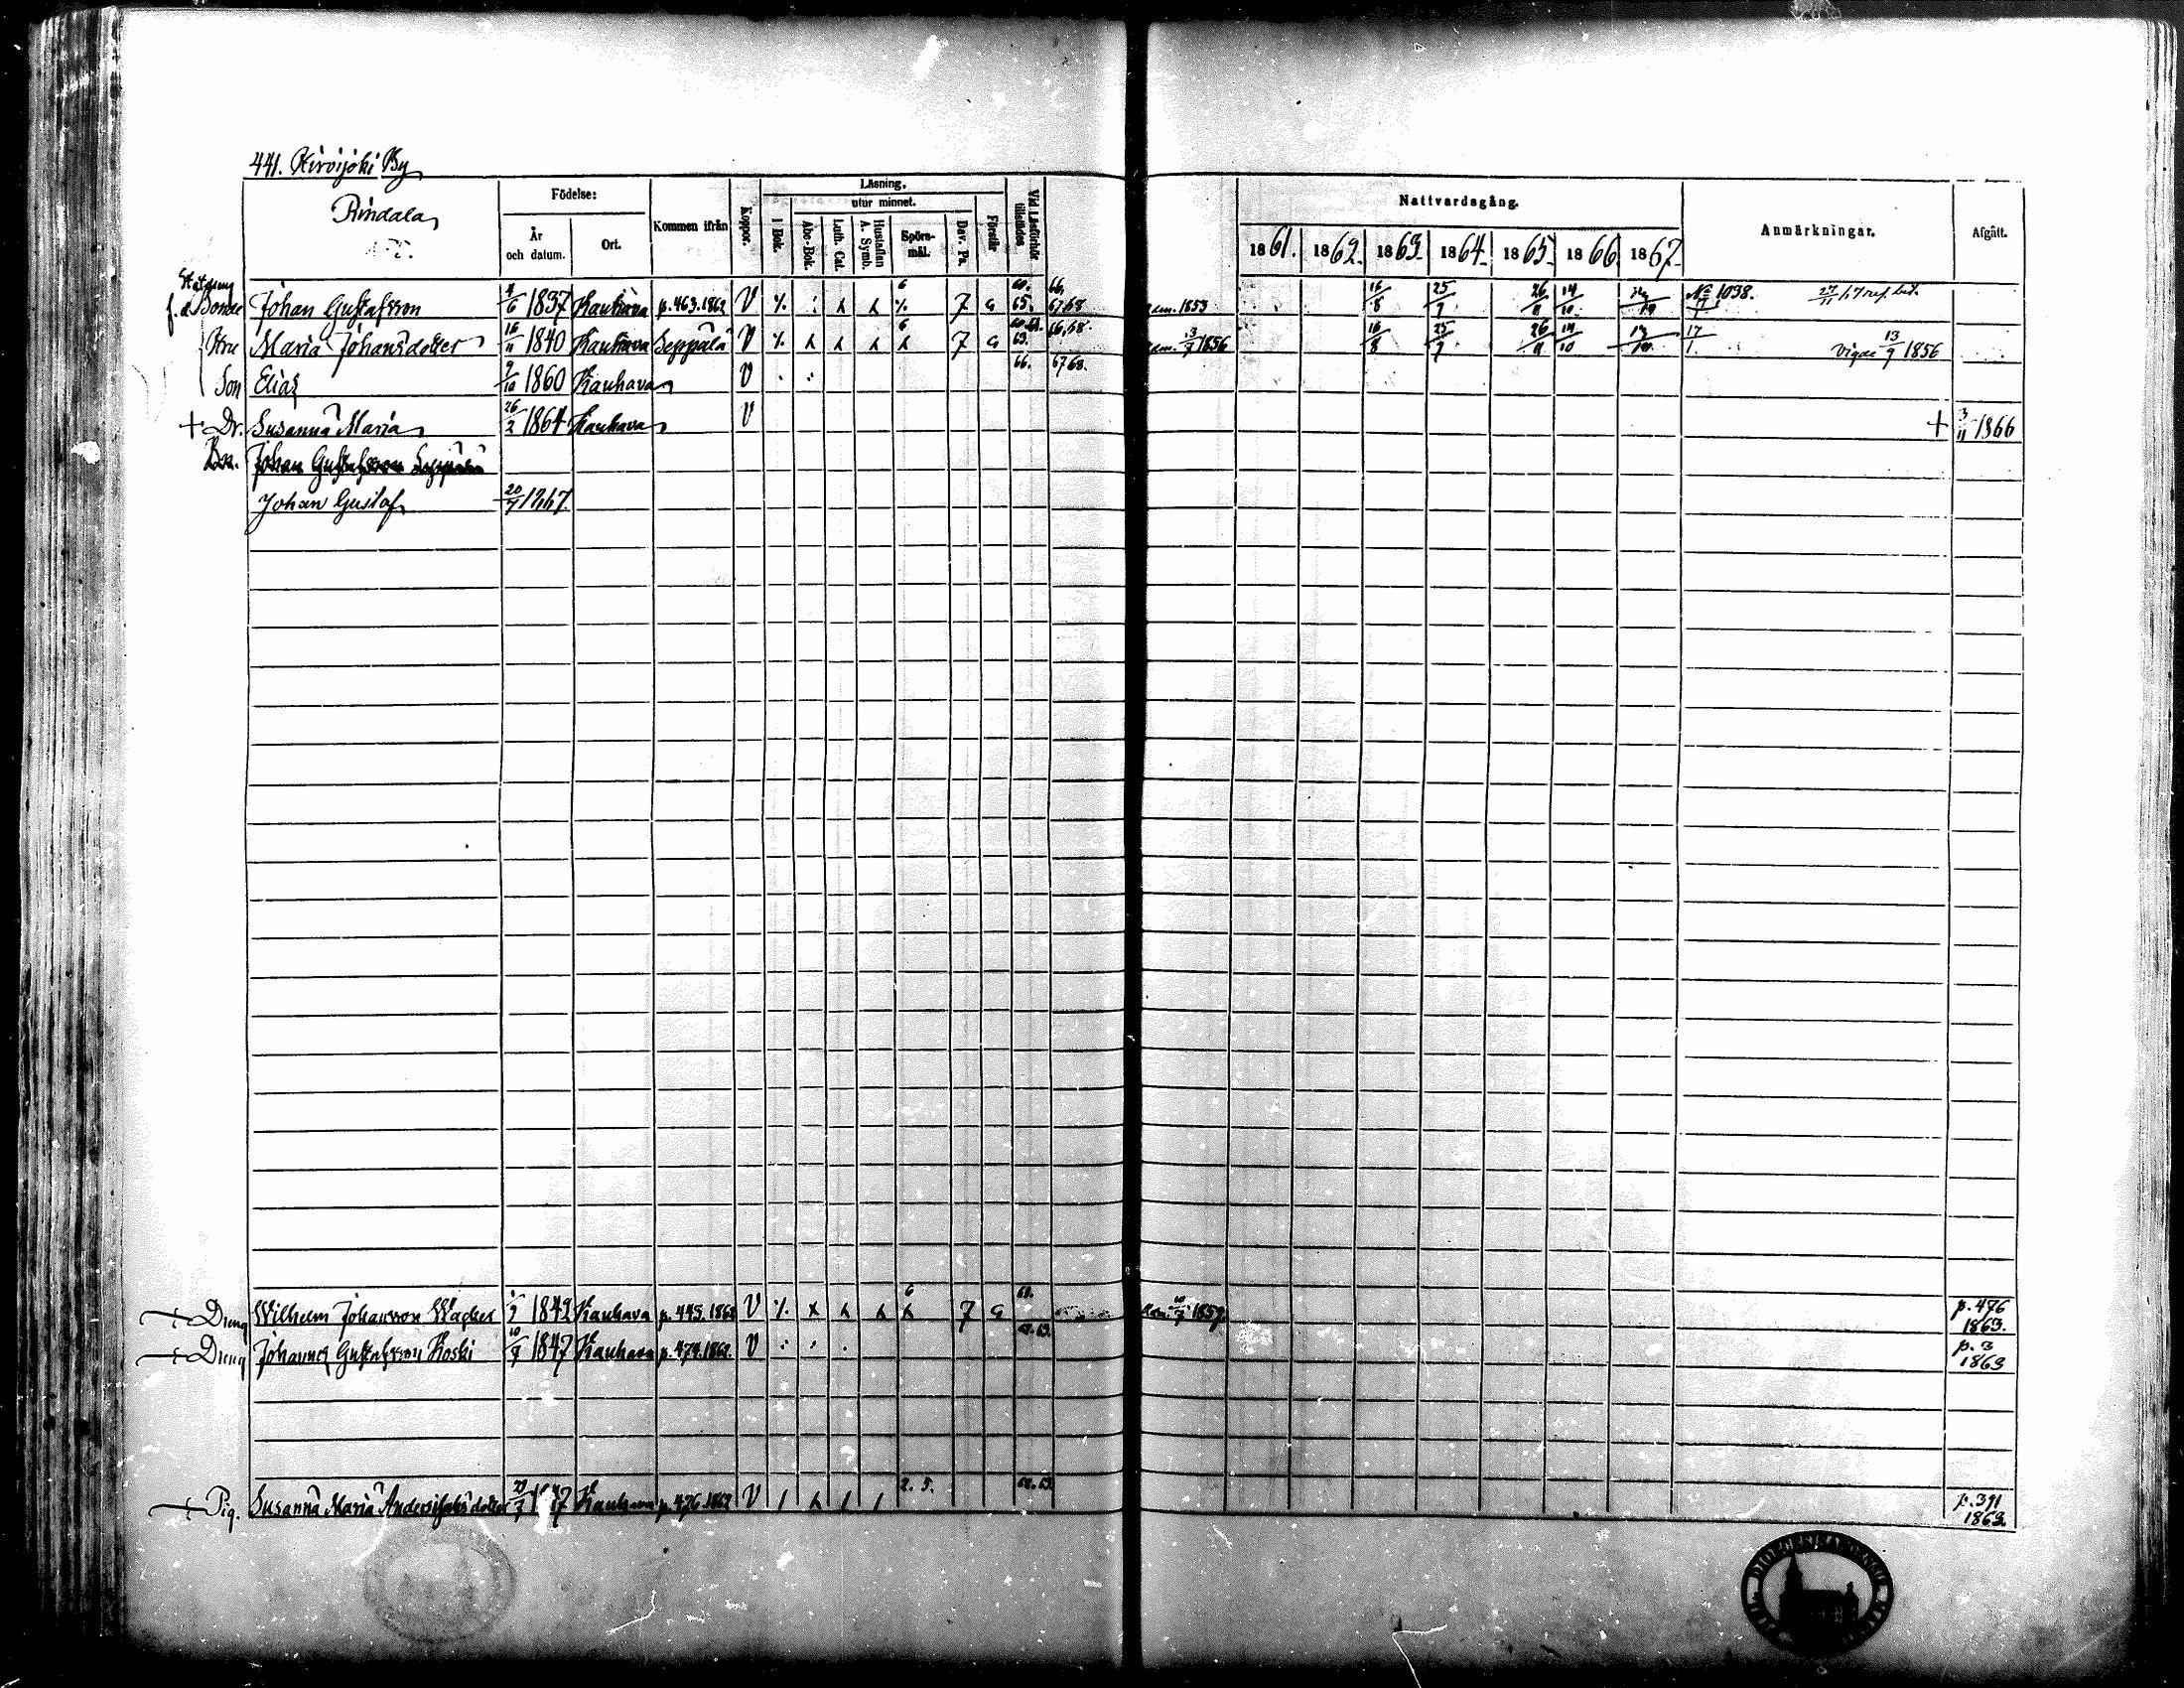 441. Hirvijoki By
Rindala
Födelse:
År och datum.
Ort.
Kommen ifrån
Koppor.
Läsning,
utur minnet.
I Bok.
Abc-Bok.
Luth. Cat.
Hustaflan A. Symb.
Spörs-mål.
Dav. Ps.
Förstår
Vid Läsförhör tillstädes
Nattvardsgång.
1861. 1862. 1863. 1864. 1865. 1866. 1867.
Anmärkningar.
Afgått.
f. d. Bonde Johan Gustafsson 1837 Kauhava p. 463. 1862 V 7 a 65. 66. 67.68 1853 16/8 25/7 26/11 14/10 № 1038.
Hru Maria Johansdotter 16/11 1840 Kauhava Seppälä V 7 a 66.68. 1856 16/8 25/7 26/11 14/10 17/1 Vigde 13/9 1856
Son Elias 9/10 1860 Kauhava V 66. 67 68.
+ Dr. Susanna Maria 26/2 1864 Kauhava V + 3/11 1866
Johan Gustafsson
Johan Gustaf 20/7 1867.
Dreng Wilhelm Johansson 1842 Kauhava p. 445. V 6 7 a 1859. p. 476 1863.
Dreng Johannes Gustafsson Koski 10/9 1847 Kauhava p. 474. 1862. V p. 3 1863
Pig. Susanna Maria Kauhava p. 476. 1862 V 2. 5. p. 391 1863.